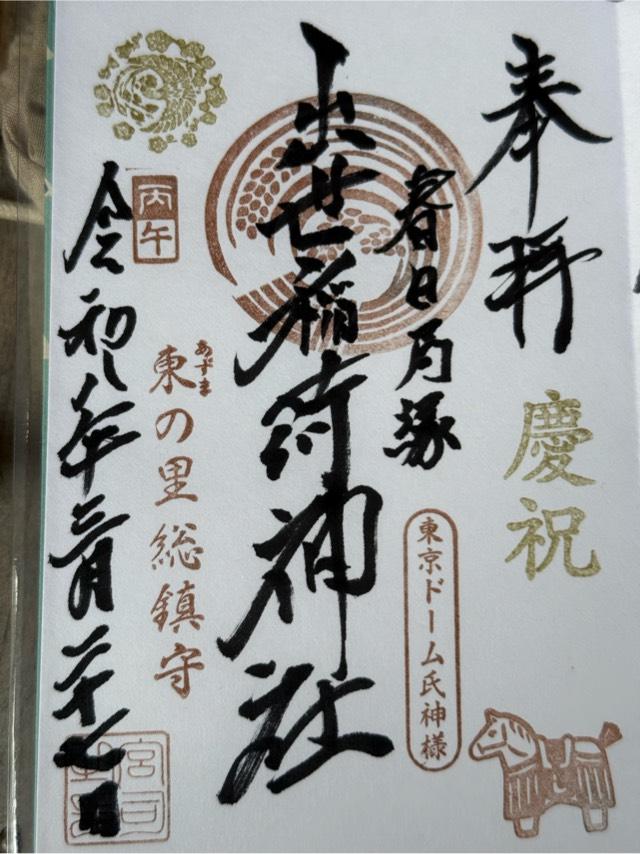 奉拝
慶祝
春日局塚
東京ドーム氏神様
出世稲荷神社
丙午
東の里総鎮守
あずま
令和八年三月二十七日
宮司